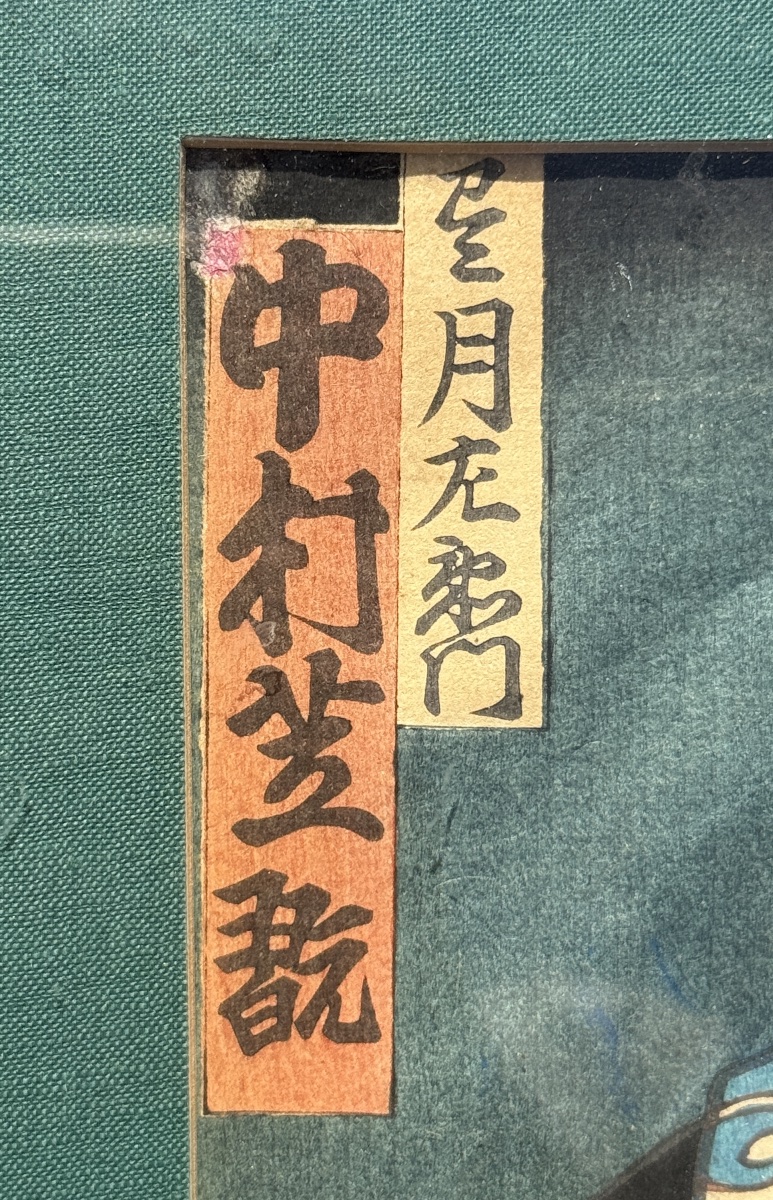 望月左衛門
中村芝翫